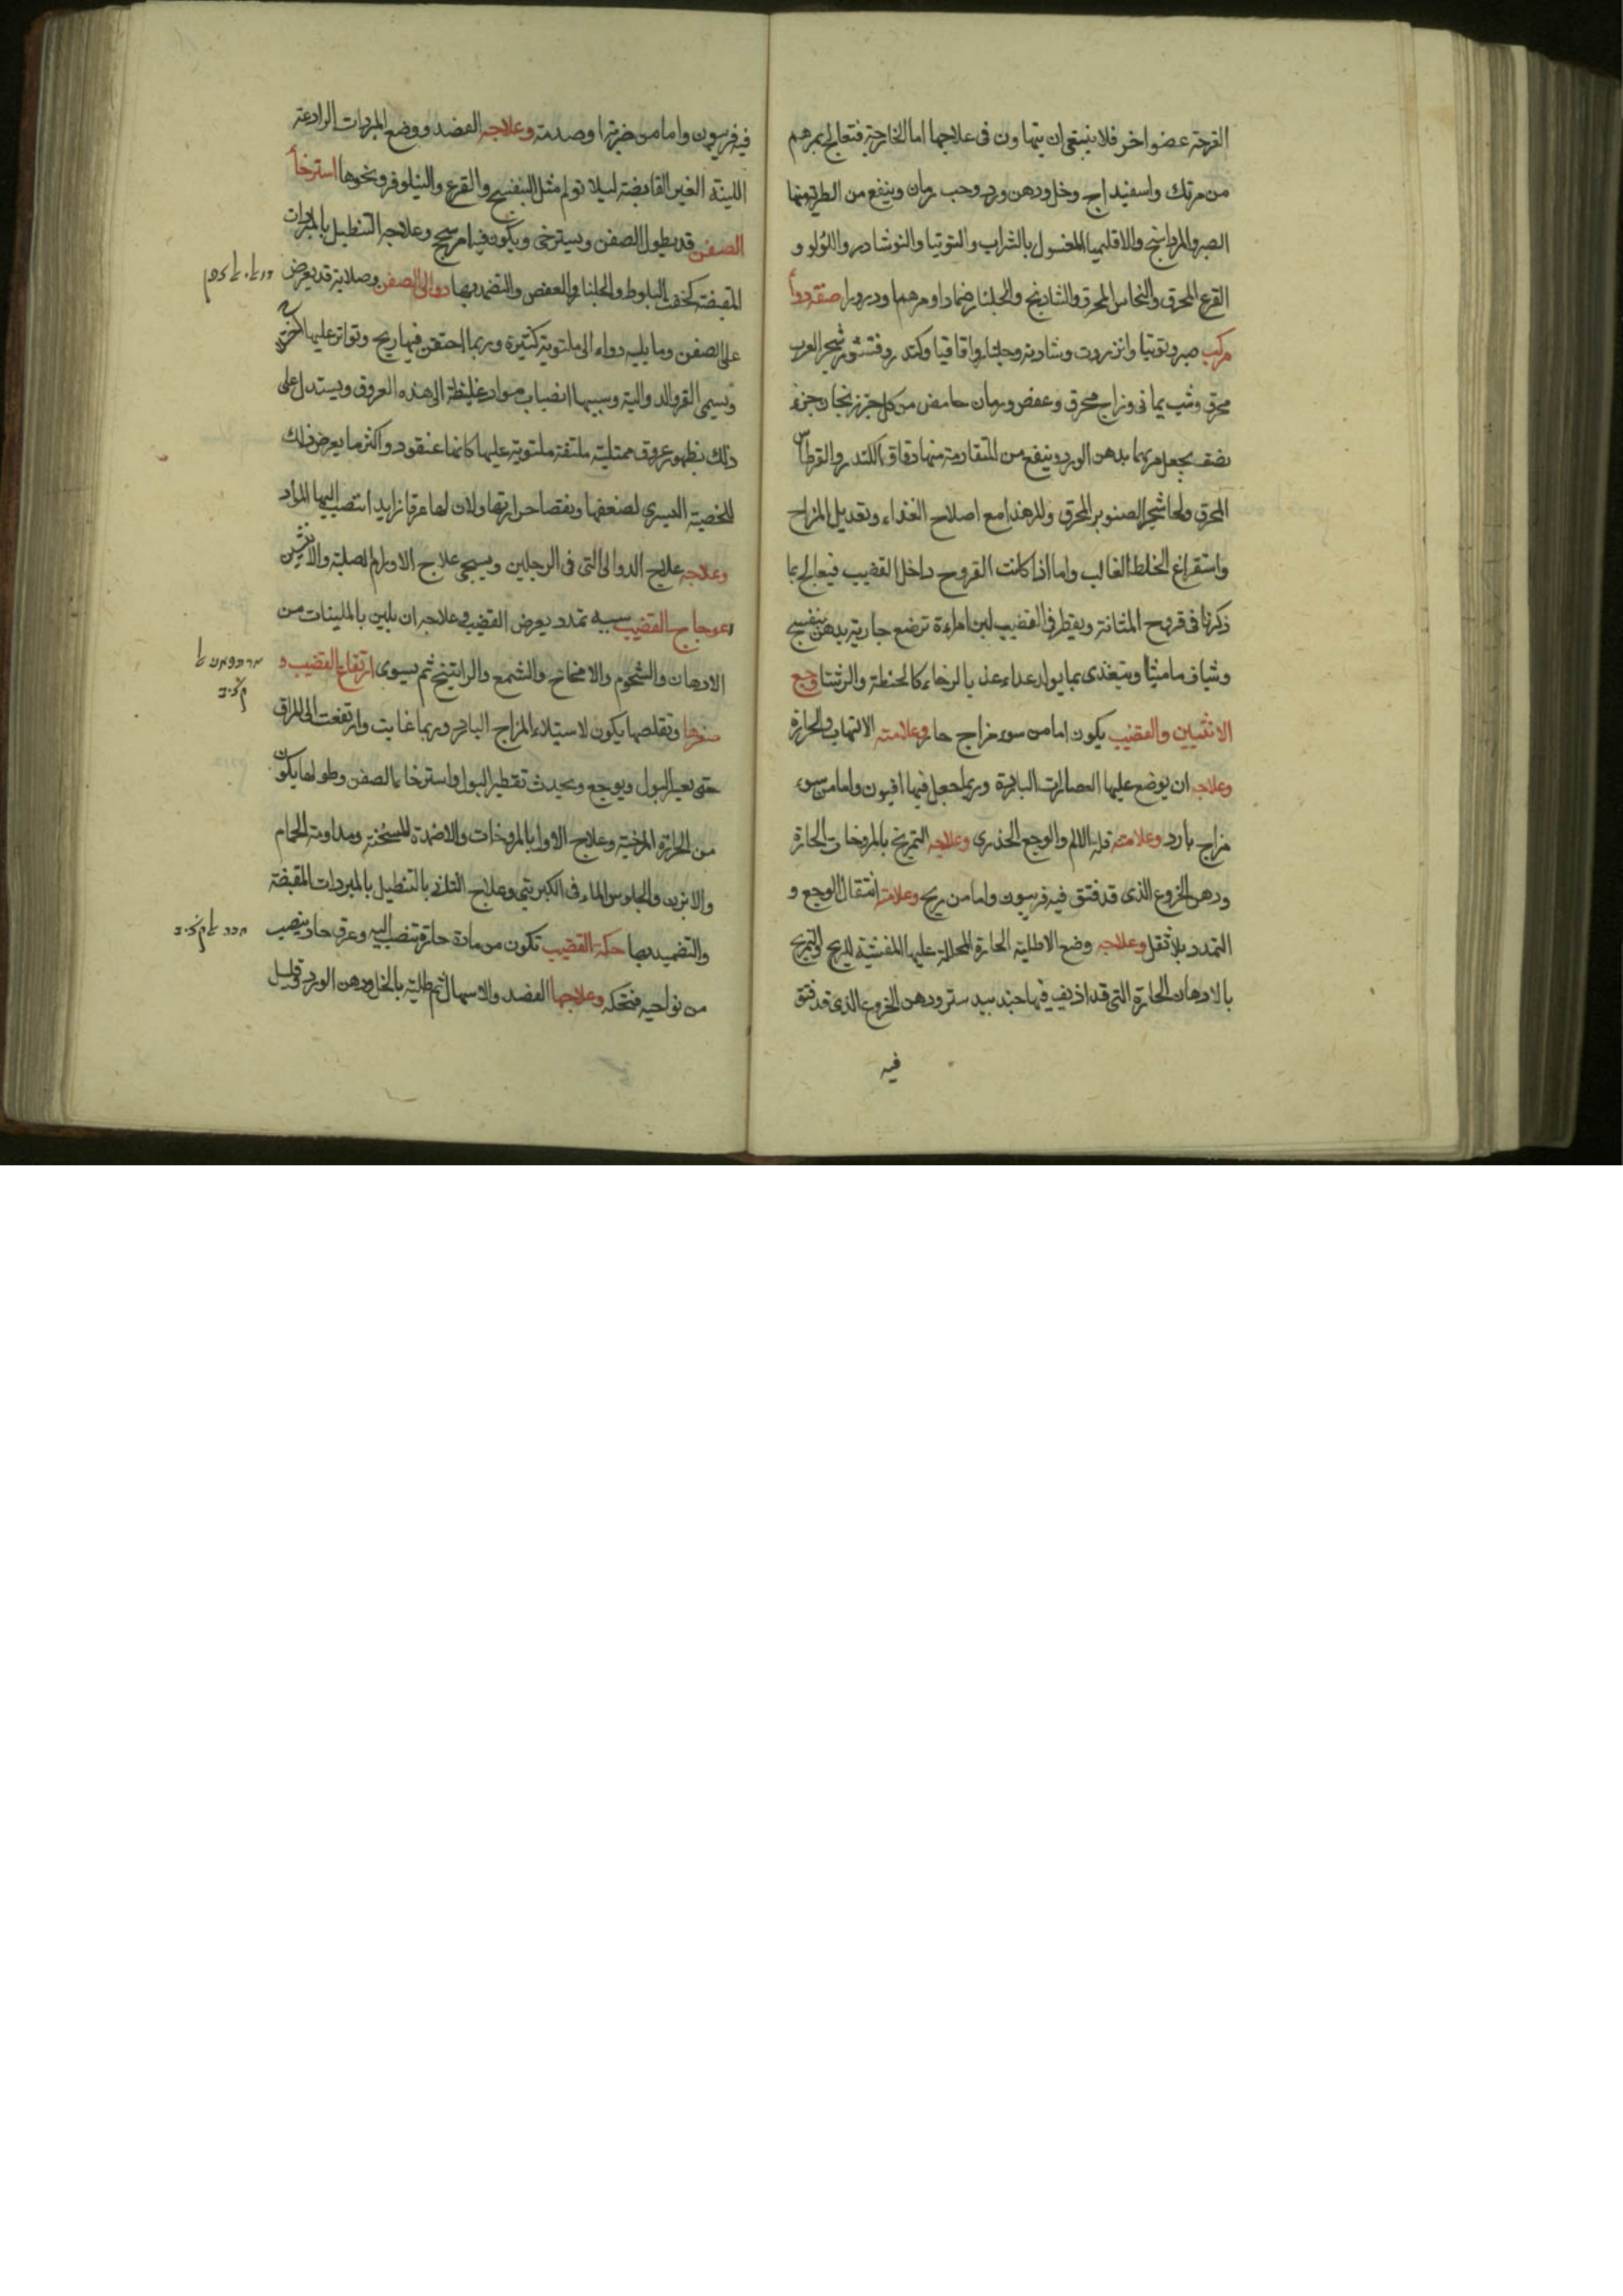 القرحة عضوا اخر فلا ينبغى ان يتهاون فى علاجها اما الخارجة فتعالج بمرهم
من مرتك واسفيداج وخل ودهن ورد وحب رمان وينفع من الطرية منها
الصبر والمرداسنج والاقليميا المغسول بالشراب والتوتيا والنوشادر واللؤلؤ و
القرع المحرق والنحاس المحرق والشادنج والجلنار ضمادا ومرهما وذرورا صفة دوأ
مركب صبر وتوتيا وانزروت وشادنة وجلنار واقاقيا وكندر وقشور شجر الغرب
محرق وشب يمانى وزاج محرق وعفص ورمان حامض من كل جزء زنجار جزء
نصف يجعل مرهما بدهن الورد وينفع من المتقادمة منها دقاق الكندر والقرطاس
المحرق ولحا شجر الصنوبر المحرق وليكن هذا مع اصلاح الغذاء وتعديل المزاج
واستفراغ الخلط الغالب واما اذا كانت القروح داخل القضيب فيعالج بما
ذكرنا فى قروح المثانة ويقطر فى القضيب لبن امراءة ترضع جارية بدهن بنفسج
وشياف ماميثا ويتغذى بما يولد غداء كالحنطة والرشتا وجع
الانثيين والقضيب يكون اما من سوء مزاج حار وعلامته الالتهاب والحرارة
وعلاجه ان يوضع عليها العصارات الباردة وربما جعل فيها افيون واما من سوء
مزاج بارد وعلامته قلة الالم والوجع الخدرى وعلاجه التمريخ بالمروخات الحارة
ودهن الخروع الذى قد فتق فيه فربيون واما من ريح وعلامته انتقال الوجع و
التمدد بلا ثقل وعلاجه وضع الاطلية الحارة المحللة عليها المفشية للريح والتمريخ
بالادهان الحارة التى قد اذيف فيها جندبيدستر ودهن الخروع الذى قد فتق
فيه
فيه فربيون واما من ضربة او صدمة وعلاجه الفصد ووضع المبردات الرادعة
اللينة الغير القابضة ليلا تولم مثل البنفسج والقرع والنيلوفر ونحوها استرخأ
الصفن قد يطول الصفن ويسترخى ويكون فيه امر سمج وعلاجه التنطيل بالمبردات
المقبضة كجفت البلوط والجلنار والعفص والتضميد بها دوالى الصفن وصلابة قد يعرض
على الصفن وما يليه دوالى ملتوية كثيرة وربما احتقن فيها ريح وتواتر عليها
ويسمى القرو الدوالية وسببها انصباب مواد غليظة الى هذه العروق ويستدل على
ذلك بظهور عروق ممتلية ملتفة ملتوية عليها كانها عنقود واكثر ما يعرض ذلك
للخصية اليسرى لضعفها ونقصان حرارتها ولان لها عرقا زايدا تنصب اليها المواد
وعلاجه علاج الدوالى التى فى الرجلين ويسجى علاج الاورام الصلبة والانثيين
اعوجاج القضيب سببه تمدد يعرض القضيب وعلاجه ان يلين بالملينات من
الادهان والشحوم والامخاخ والشمع والراتينج ثم يسوى ارتفاع القضيب و
صغرها وتقلصها يكون لاستيلاء المزاج البارد وربما غابت وارتفعت الى المراق
حتى يعسر البول ويوجع ويحدث تقطير البول واسترخاء الصفن وطولها يكون
من الحرارة المرخية وعلاج الاول بالمروخات والاضمدة المسخنة ومداومة الحمام
والابزن والجلوس فى الماء الكبريتى وعلاج الثانى بالتنطيل بالمبردات المقبضة
والتضميد بها حكة القضيب تكون من مادة حارة تنصب اليه وعرق حاد ينصب
من نواحيه فتحكه وعلاجها الفصد والاسهال ثم طليه بالخل ودهن الورد وقليل